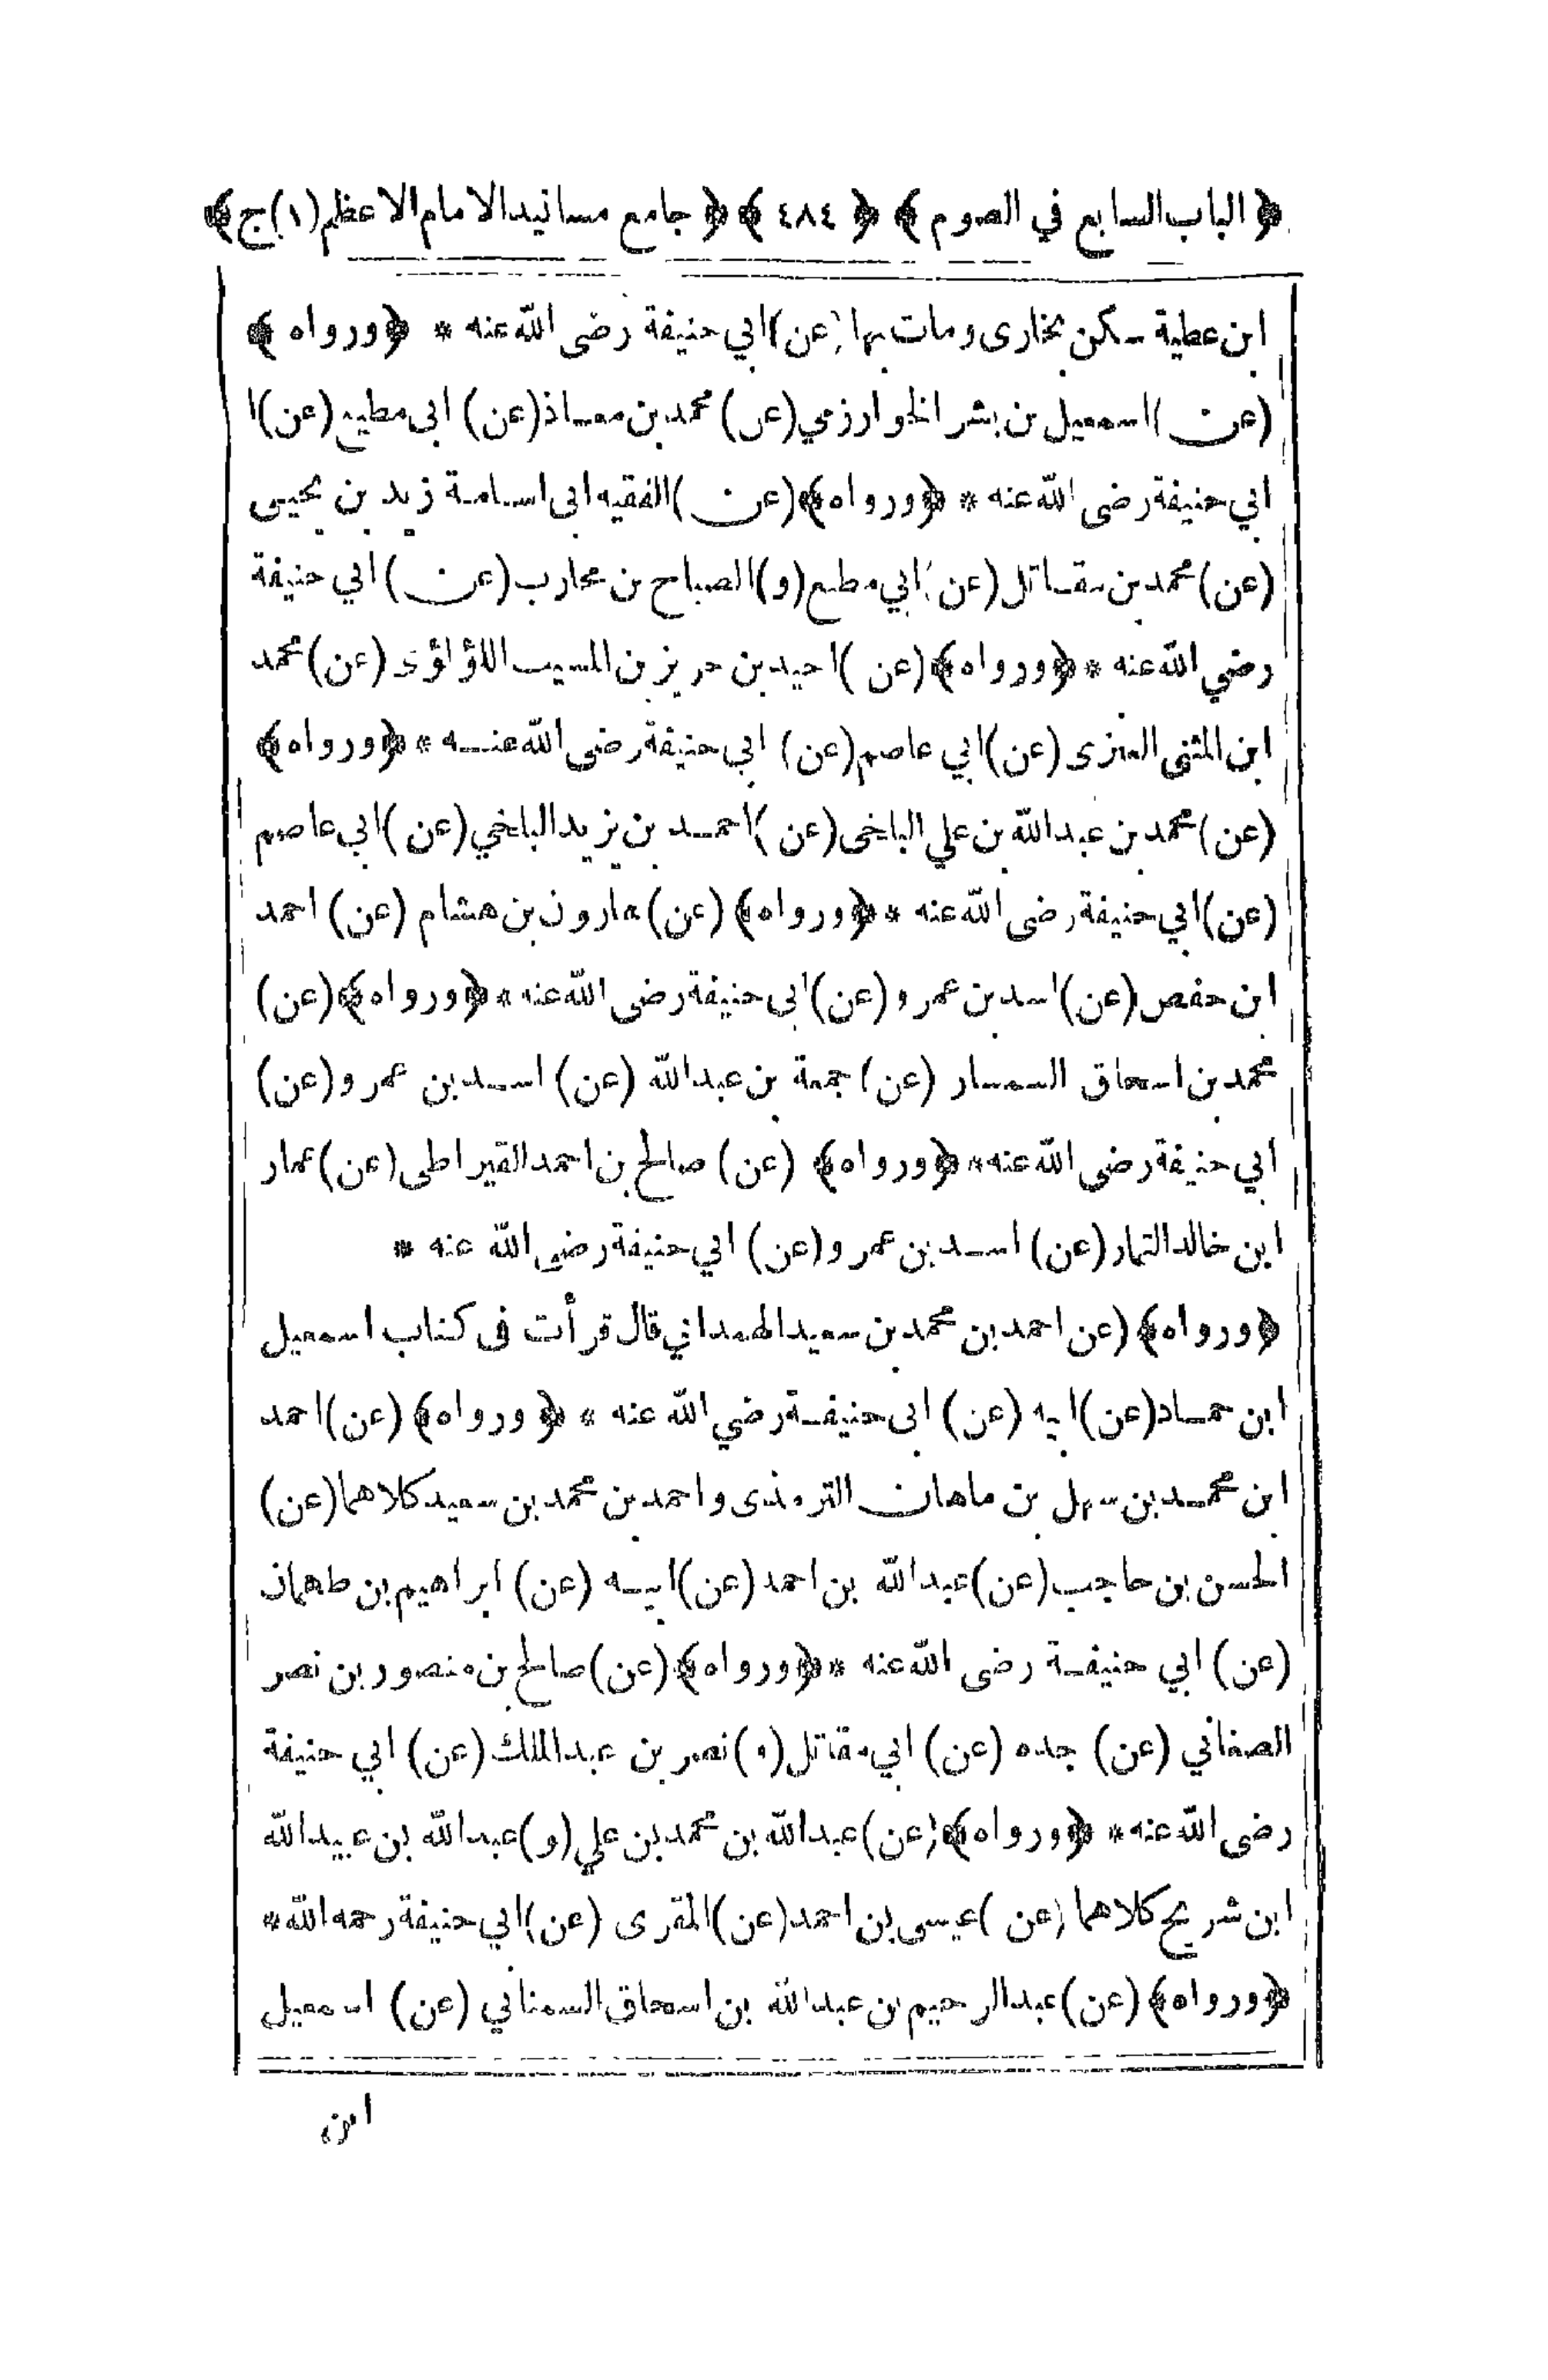 ﴿ الباب السابع في الصوم ﴾ ﴿ ٤٨٤ ﴾ ﴿ جامع مسانيد الامام الاعظم (١) ج ﴾
ابن عطية سكن بخارى ومات بها (عن) ابي حنيفة رضى الله عنه * ﴿ ورواه ﴾
(عن) اسمعيل بن بشر الخوارزمي (عن) محمد بن معاذ (عن) ابى مطيع (عن) ا
ابي حنيفة رضى الله عنه * ﴿ ورواه ﴾ (عن) الفقيه ابى اسامة زيد بن يحيى
(عن) محمد بن مقاتل (عن) ابي مطيع (و) الصباح بن محارب (عن) ابي حنيفة
رضي الله عنه * ﴿ ورواه ﴾ (عن) احيد بن حريز بن المسيب اللؤلؤى (عن) محمد
ابن المثنى العنزى (عن) ابي عاصم (عن) ابي حنيفة رضى الله عنه * ﴿ ورواه ﴾
(عن) محمد بن عبد الله بن علي البلخى (عن) احمد بن يزيد البلخي (عن) ابي عاصم
(عن) ابي حنيفة رضى الله عنه * ﴿ ورواه ﴾ (عن) هارون بن هشام (عن) احمد
ابن حفص (عن) اسد بن عمرو (عن) ابى حنيفة رضى الله عنه * ﴿ ورواه ﴾ (عن)
محمد بن اسحاق السمسار (عن) جمعة بن عبد الله (عن) اسد بن عمرو (عن)
ابي حنيفة رضى الله عنه * ﴿ ورواه ﴾ (عن) صالح بن احمد القيراطى (عن) عمار
ابن خالد التمار (عن) اسد بن عمرو (عن) ابي حنيفة رضى الله عنه *
﴿ ورواه ﴾ (عن احمد بن محمد بن سعيد الهمداني قال قرأت فى كتاب اسمعيل
ابن حماد (عن) ابيه (عن) ابى حنيفة رضي الله عنه * ﴿ ورواه ﴾ (عن) احمد
ابن محمد بن سهل بن ماهان الترمذى واحمد بن محمد بن سعيد كلاهما (عن)
الحسن بن حاجب (عن) عبد الله بن احمد (عن) ابيه (عن) ابراهيم بن طهمان
(عن) ابي حنيفة رضى الله عنه * ﴿ ورواه ﴾ (عن) صالح بن منصور بن نصر
الصغاني (عن) جده (عن) ابي مقاتل (و) نصر بن عبد الملك (عن) ابي حنيفة
رضى الله عنه * ﴿ ورواه ﴾ (عن) عبد الله بن محمد بن علي (و) عبد الله بن عبيد الله
ابن شريح كلاهما (عن) عيسى بن احمد (عن) المقرى (عن) ابي حنيفة رحمه الله *
﴿ ورواه ﴾ (عن) عبد الرحيم بن عبد الله بن اسحاق السمناني (عن) اسمعيل
ابن